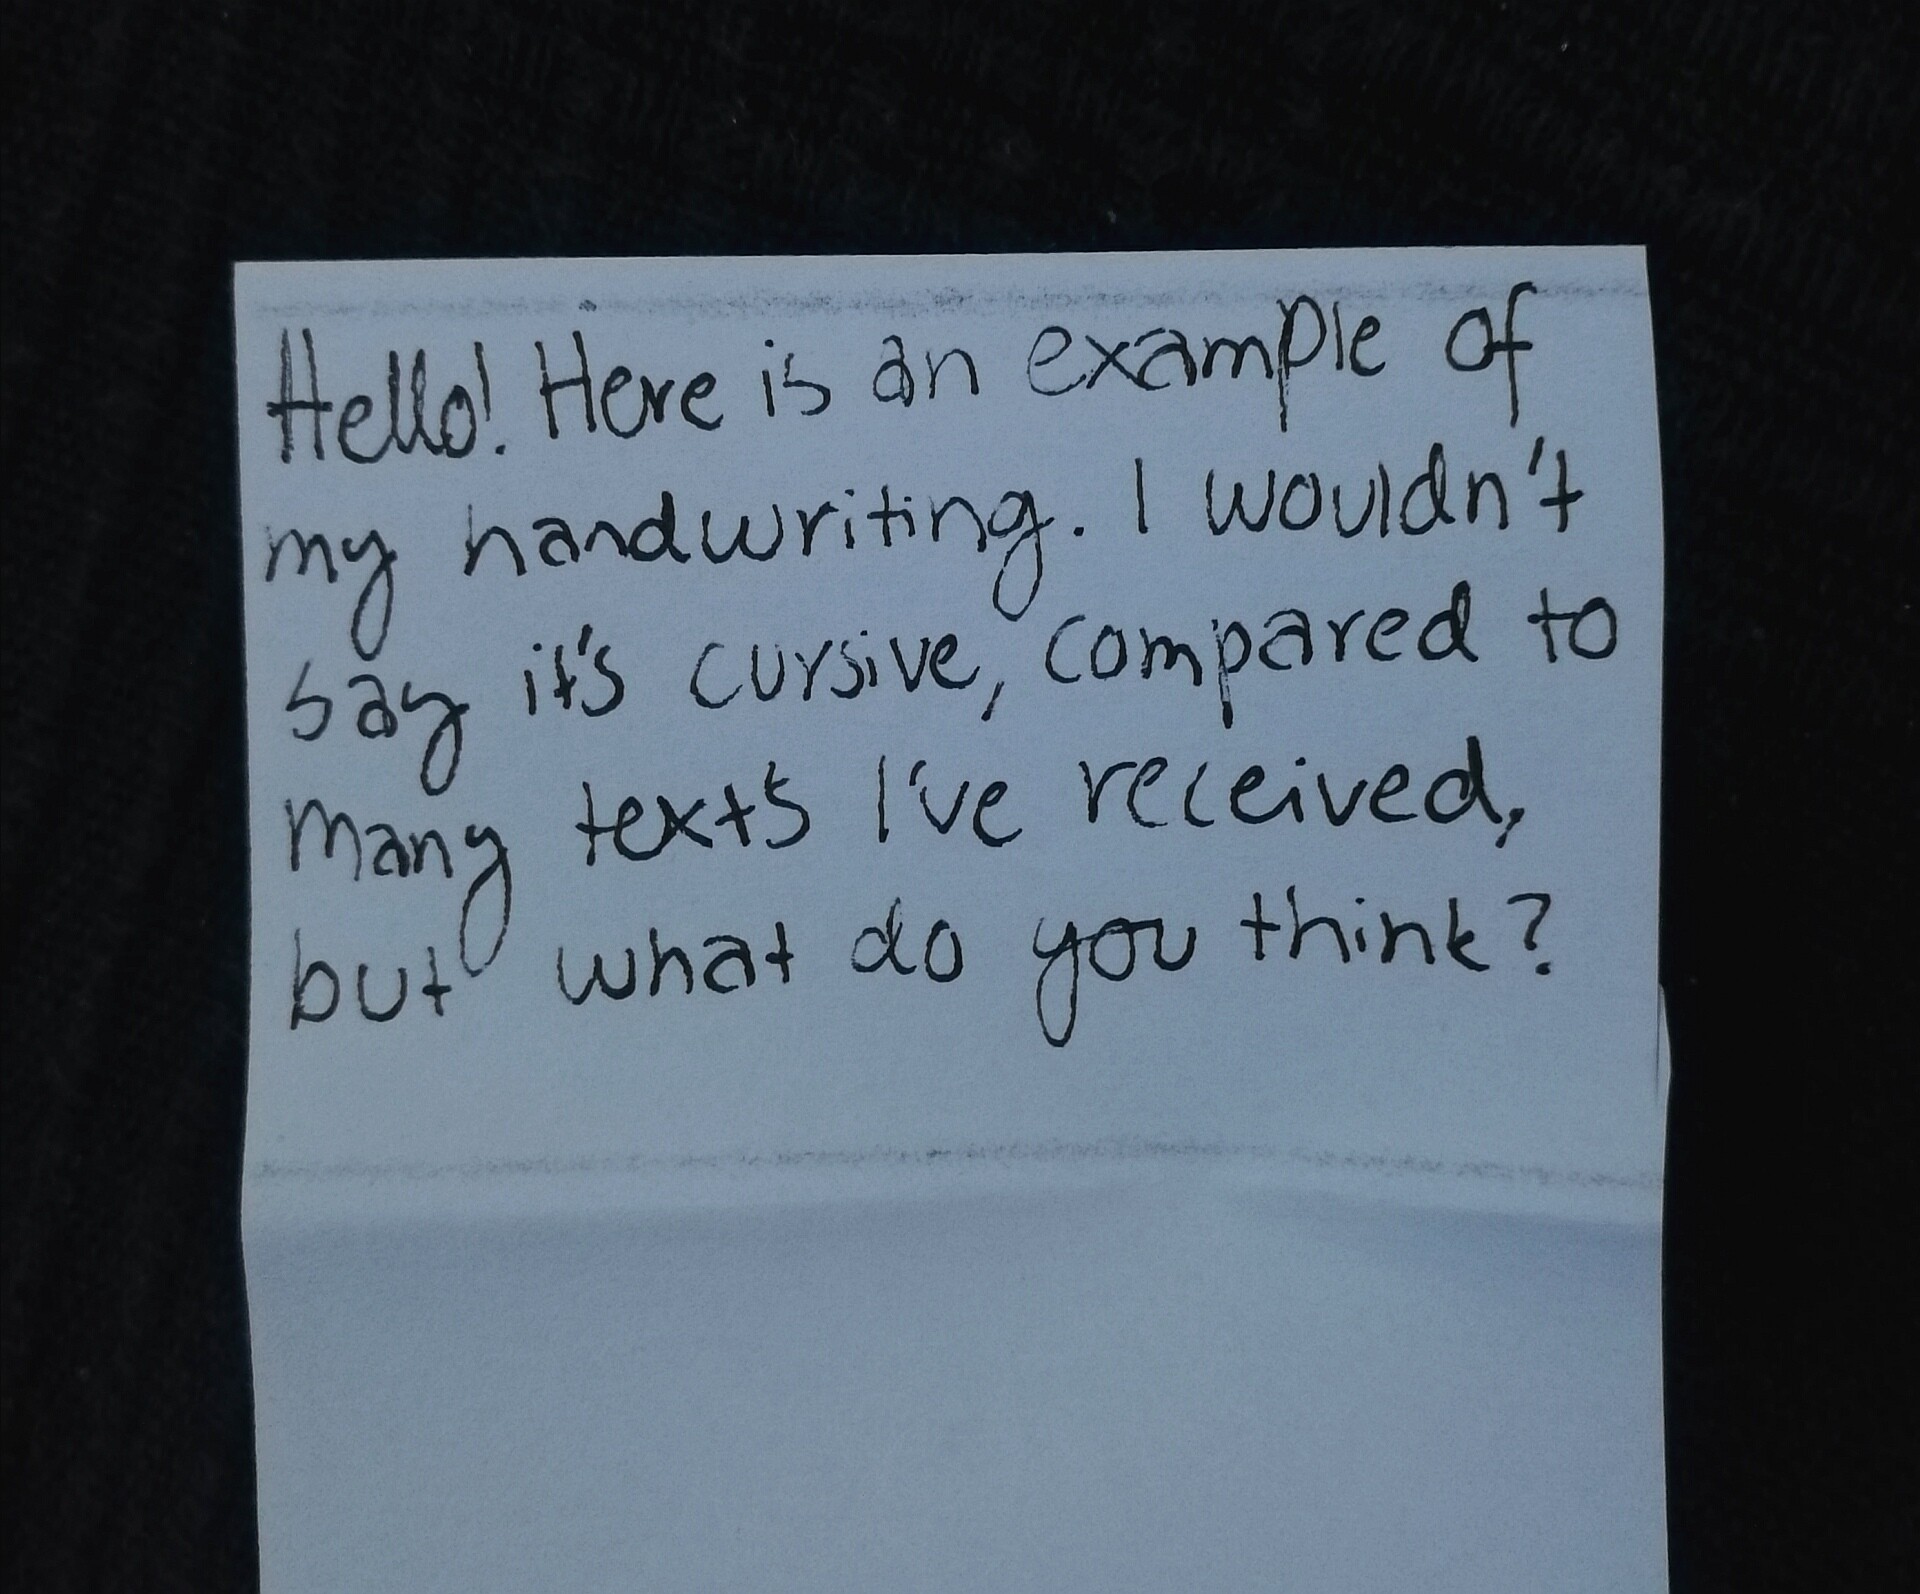 Hello! Here is an example of
my handwriting. I wouldn't
say it's cursive, compared to
many texts I've received,
but what do you think?